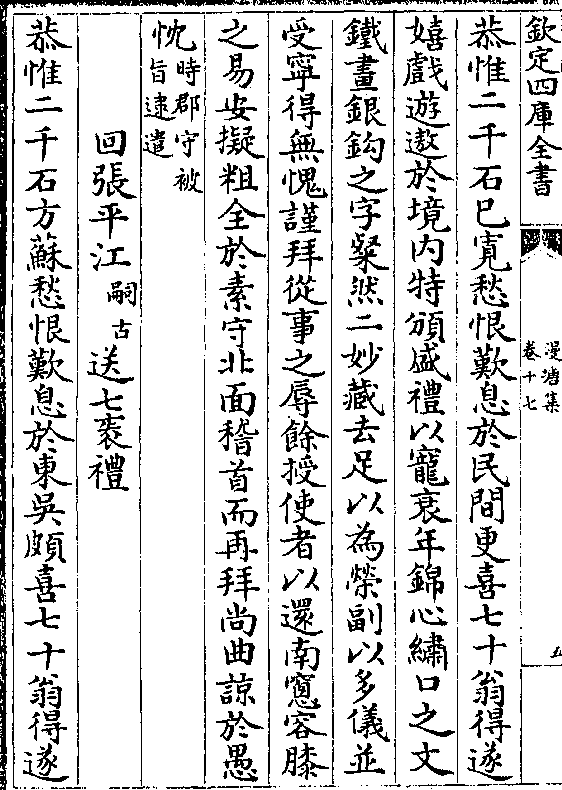 欽定四庫全書
漫塘集
卷十七
五
恭惟二千石已寛愁恨歎息於民間更喜七十翁得遂
嬉戲遊遨於境内特頒盛禮以寵衰年錦心繡口之文
鐵畫銀鈎之字粲然二妙藏去足以為榮副以多儀並
受寧得無愧謹拜從事之辱餘授使者以還南窻容膝
之易安擬粗全於素守北面稽首而再拜尚曲諒於愚
忱時郡守被
旨逮遣
回張平江嗣古送七袠禮
恭惟二千石方蘇愁恨歎息於東吳頗喜七十翁得遂